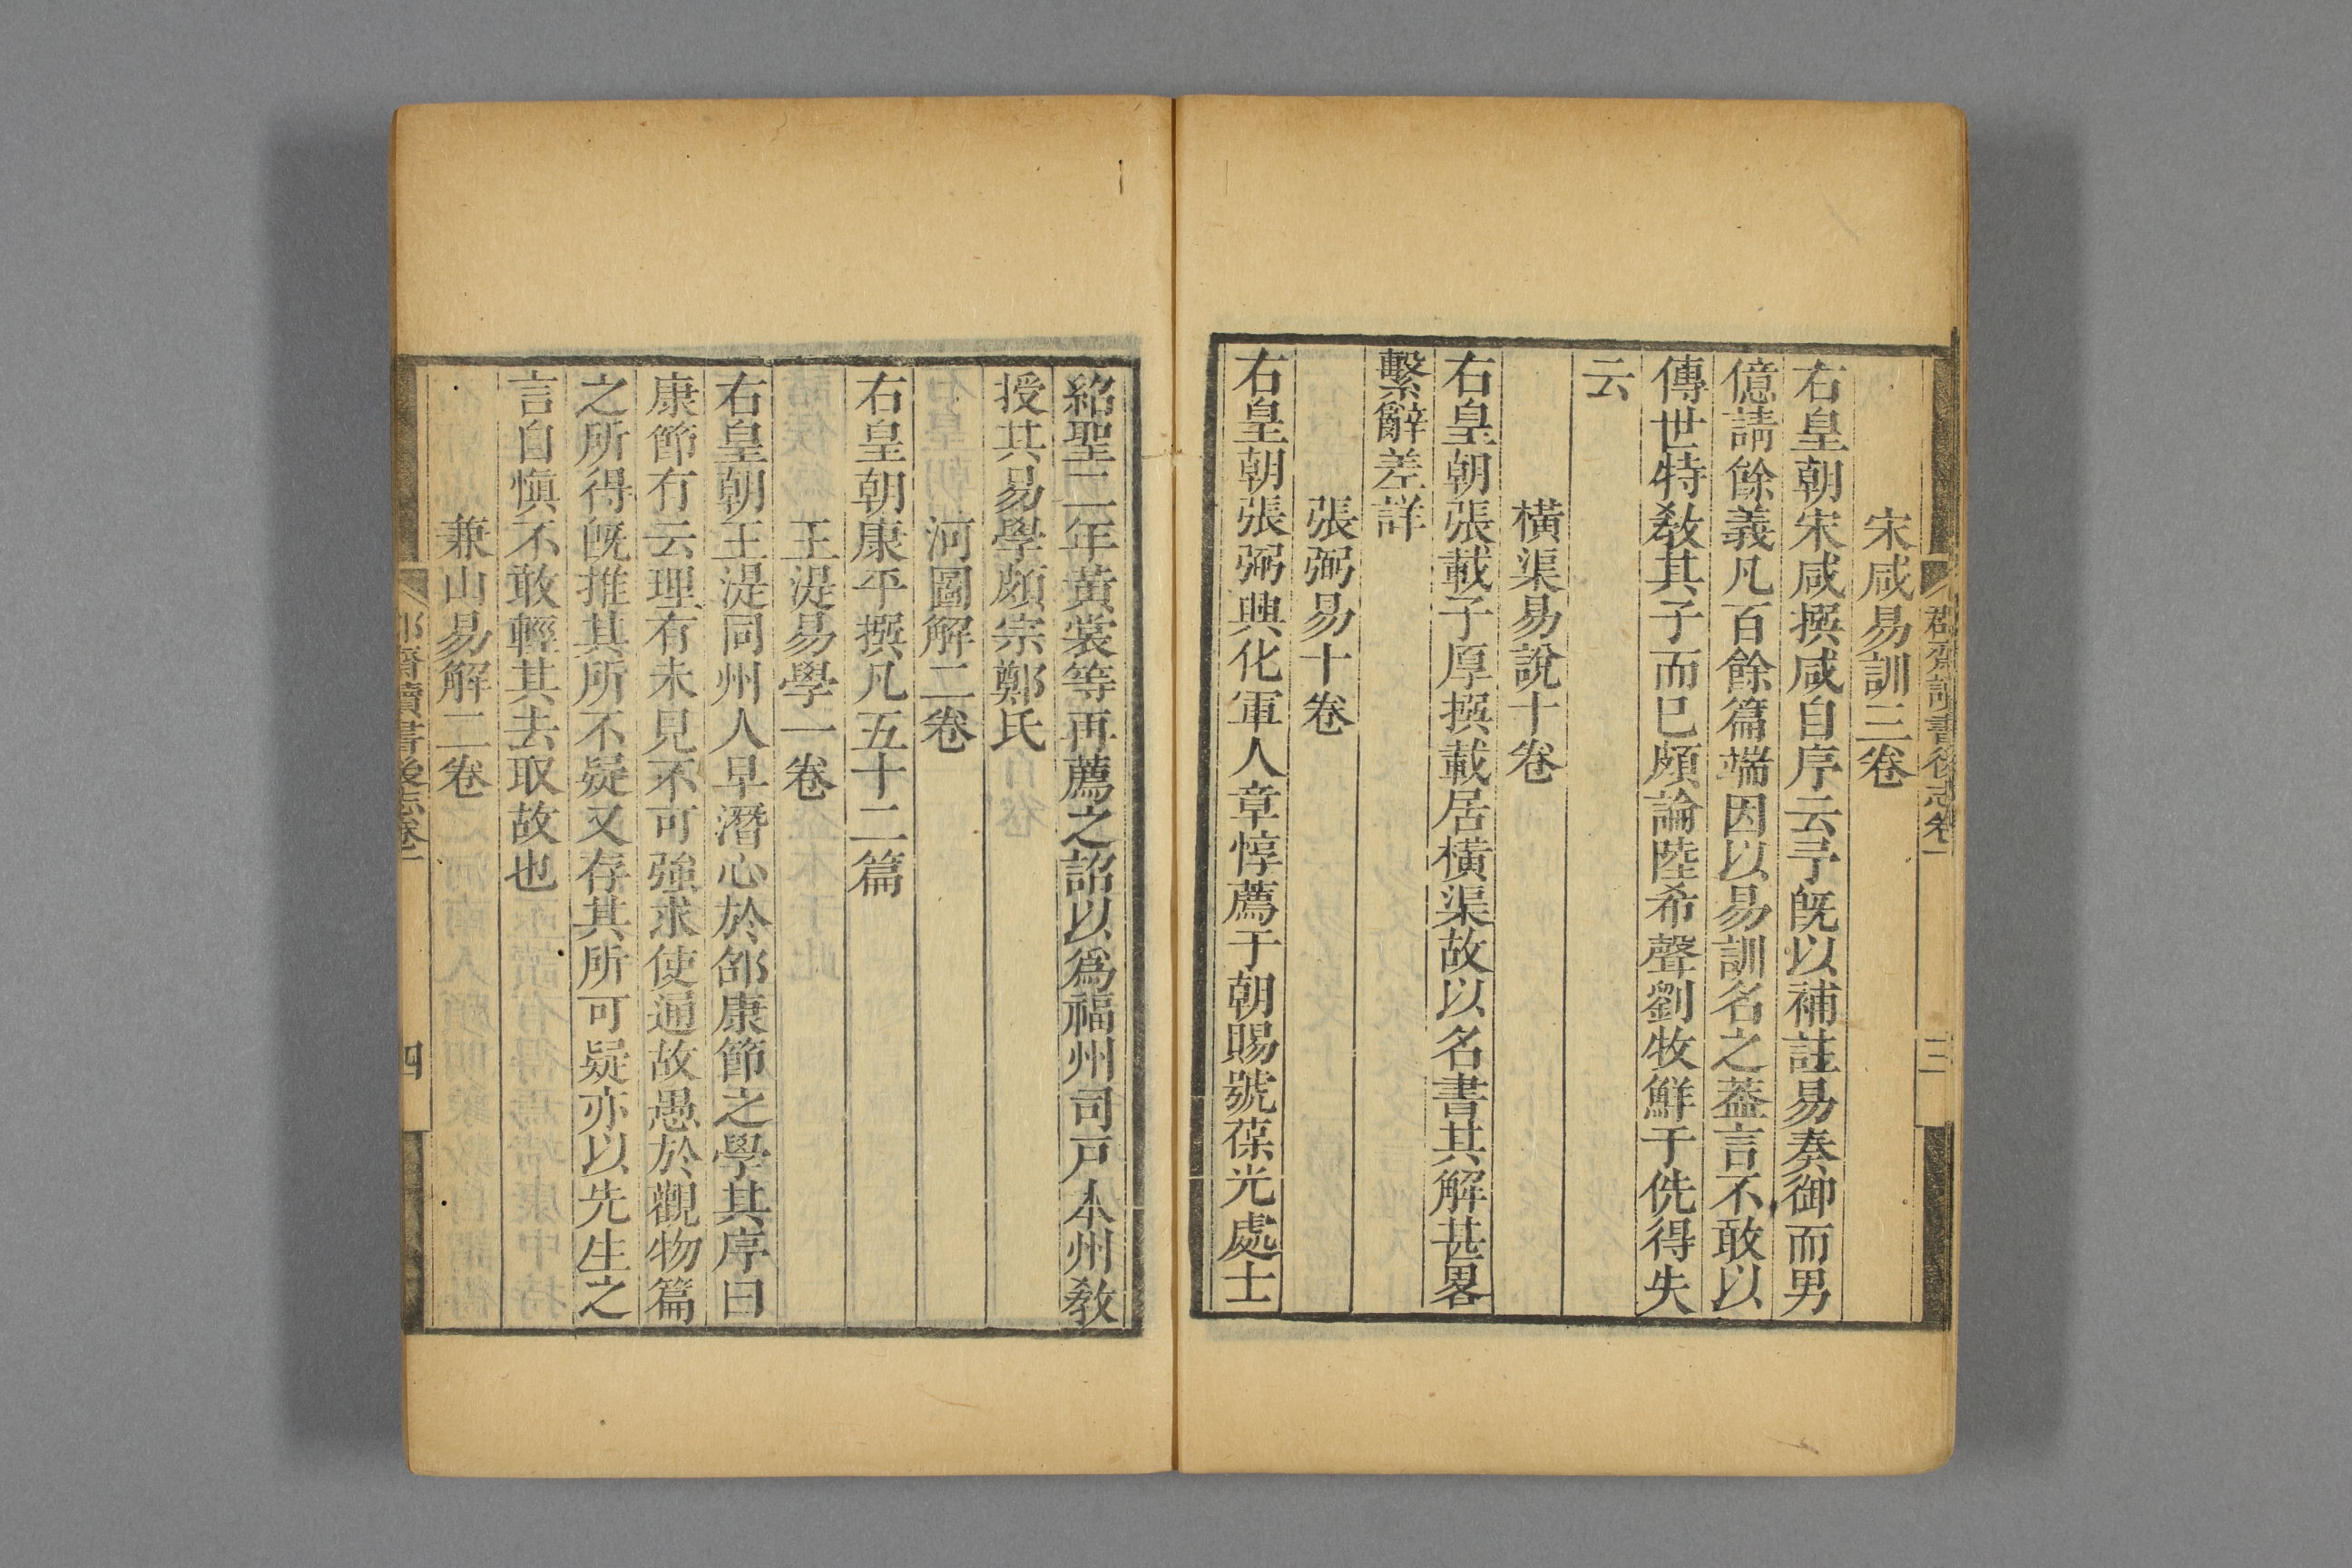 宋咸易訓三卷
右皇朝宋咸撰咸自序云予旣以補註易奏御而男
億請餘義凡百餘篇端因以易訓名之葢言不敢以
傳世特敎其子而已頗論陸希聲劉牧鮮于侁得失
云
橫渠易說十卷
右皇朝張載子厚撰載居橫渠故以名書其解甚畧
繫辭差詳
張弼易十卷
右皇朝張弼興化軍人章惇薦于朝賜號葆光處士
紹聖二年黃裳等再薦之詔以爲福州司戸本州敎
授其易學頗宗鄭氏
河圖解二卷
右皇朝康平撰凡五十二篇
王湜易學一卷
右皇朝王湜同州人早潛心於邵康節之學其序曰
康節有云理有未見不可強求使通故愚於觀物篇
之所得旣推其所不疑又存其所可疑亦以先生之
言自愼不敢輕其去取故也
兼山易解二卷
郡齋讀書後志卷一
三
郡齋讀書後志卷一
四